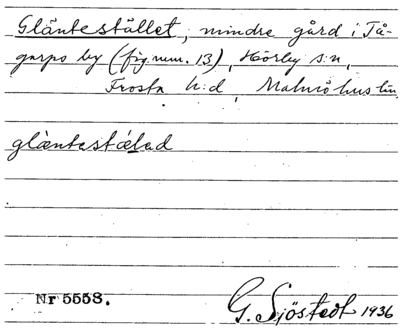 Gläntestället, mindre gård i Tå-
garps by (fig. num. 13), Hörby s:n,
Frosta h:d, Malmöhus län
glàntestǽled
Nr 5558.
G. Sjöstedt 1936